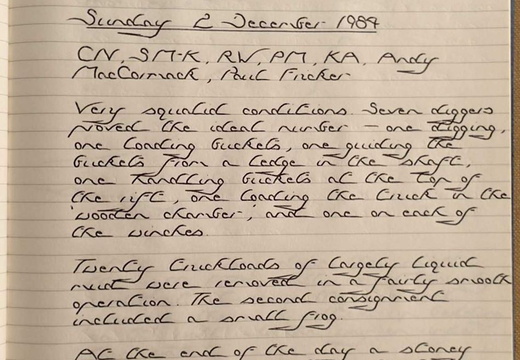 Sunday 2 December 1984
CN, SM-K, RW, PM, KA, Andy
MacCormack, Paul
Very squalid conditions. Seven diggers
proved the ideal number – one digging,
one loading buckets, one guiding the
buckets from a ledge in the shaft,
one handling buckets at the top of
the rift, one loading the truck in the
'wooden chamber', and one on each of
the winches.
Twenty truckloads of largely liquid
mud were removed in a fairly smooth
operation. The second consignment
included a small frog.
At the end of the day a stoney